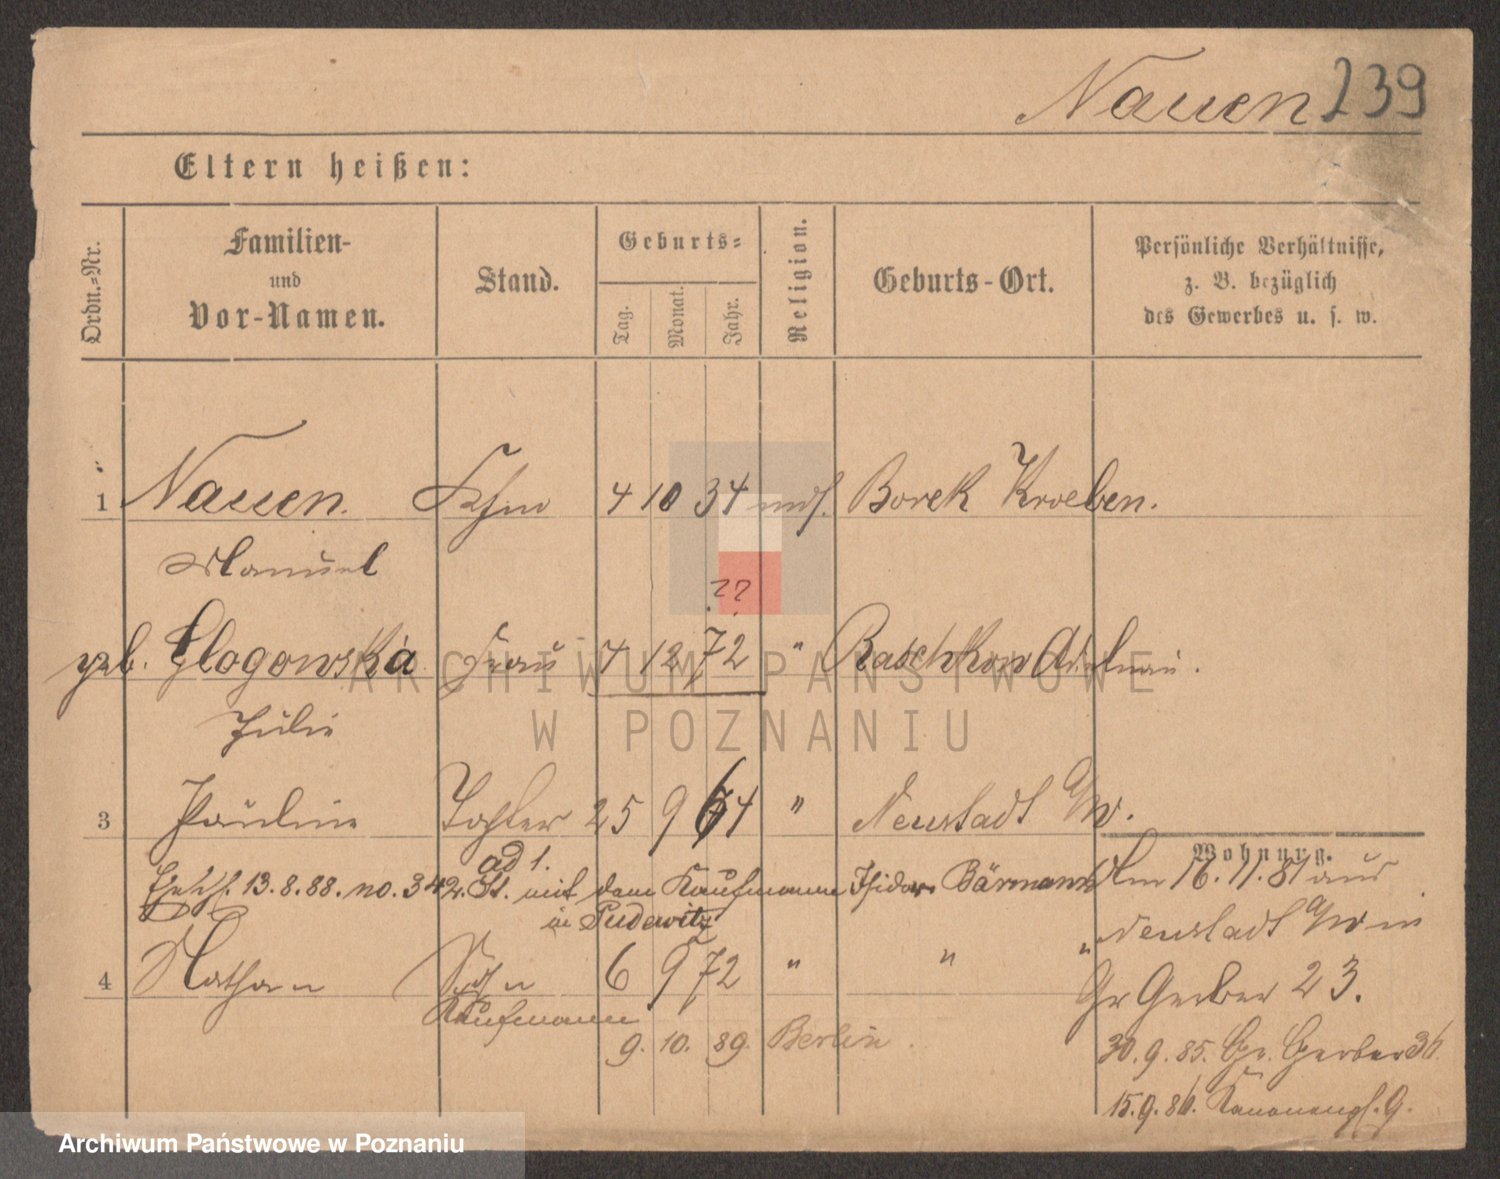 Nauen 239
Eltern heißen:
Ordn.-Nr.
Familien-
und
Vor-Namen.
Stand.
Geburts-
Tag.
Monat.
Jahr.
Religion.
Geburts-Ort.
Persönliche Verhältnisse,
z. B. bezüglich
des Gewerbes u. s. w.
1 Nauen. Kfm 4 10 34 mos. Borek Kroeben.
Manuel
??
geb. Glogowska Frau 4 12 72 " Raschkow Adelnau.
Julie
3 Pauline Tochter 25 9 64 " Neustadt a/W.
ad 1.
Wohnung.
Ehesch. 13.8.88. no. 342. St. mit dem Kaufmann Isidor Bärmann
in Pudewitz
Am 16.11.81 aus
Neustadt a/W in
4 Nathan Sohn 6 9 72 " " "
Gr Gerber 23.
Kaufmann
9. 10. 89. Berlin.
30.9.85. Gr. Gerber 36.
15.9.86. Kanonenpl. 9.
ARCHIWUM PAŃSTWOWE
W POZNANIU
Archiwum Państwowe w Poznaniu